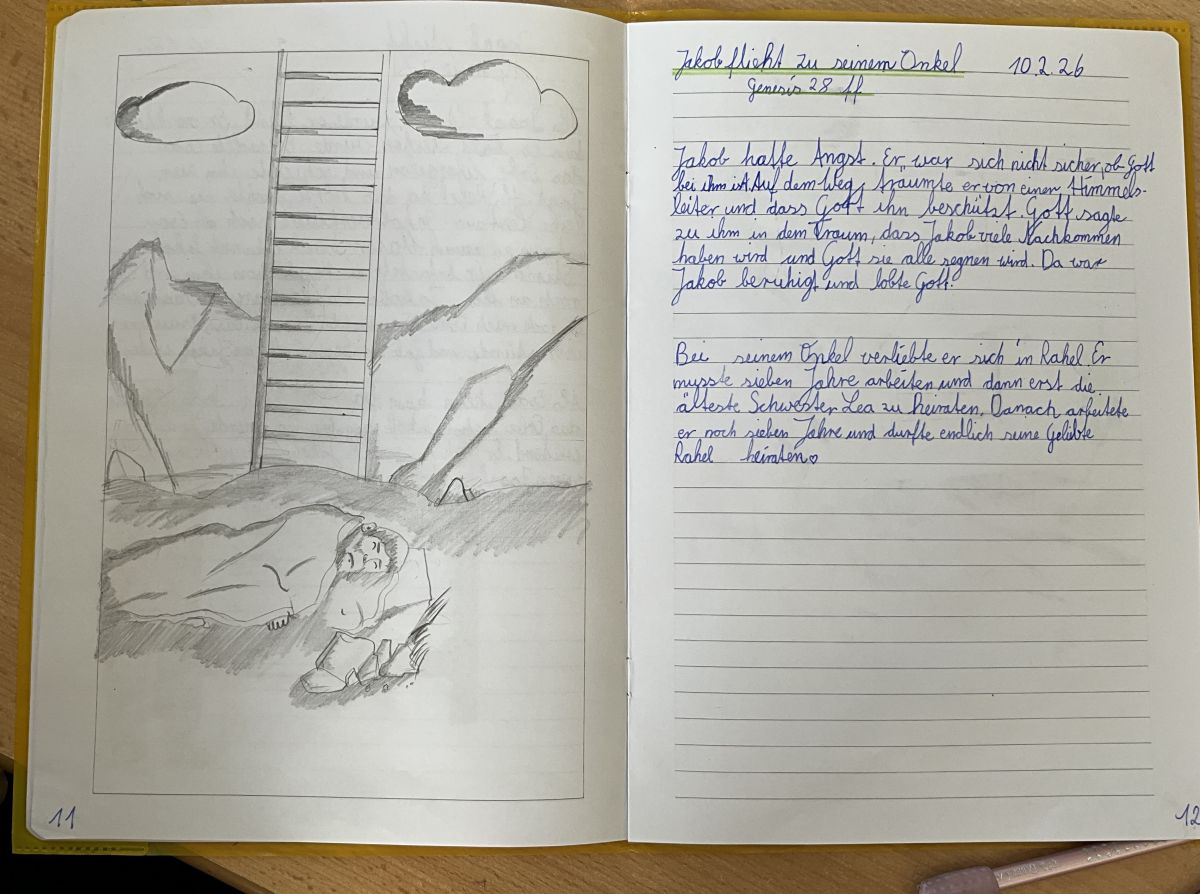 Jakob flieht zu seinem Onkel 10.2.26
Genesis 28 ff
Jakob hatte Angst. Er war sich nicht sicher, ob Gott
bei ihm ist. Auf dem Weg träumte er von einen Himmels-
leiter und dass Gott ihn beschützt. Gott sagte
zu ihm in dem Traum, dass Jakob viele Nachkommen
haben wird und Gott sie alle segnen wird. Da war
Jakob beruhigt und lobte Gott.
Bei seinem Onkel verliebte er sich in Rahel. Er
musste sieben Jahre arbeiten und dann erst die
älteste Schwester Lea zu heiraten. Danach arbeitete
er noch sieben Jahre und durfte endlich seine Geliebte
Rahel heiraten♡
11
12